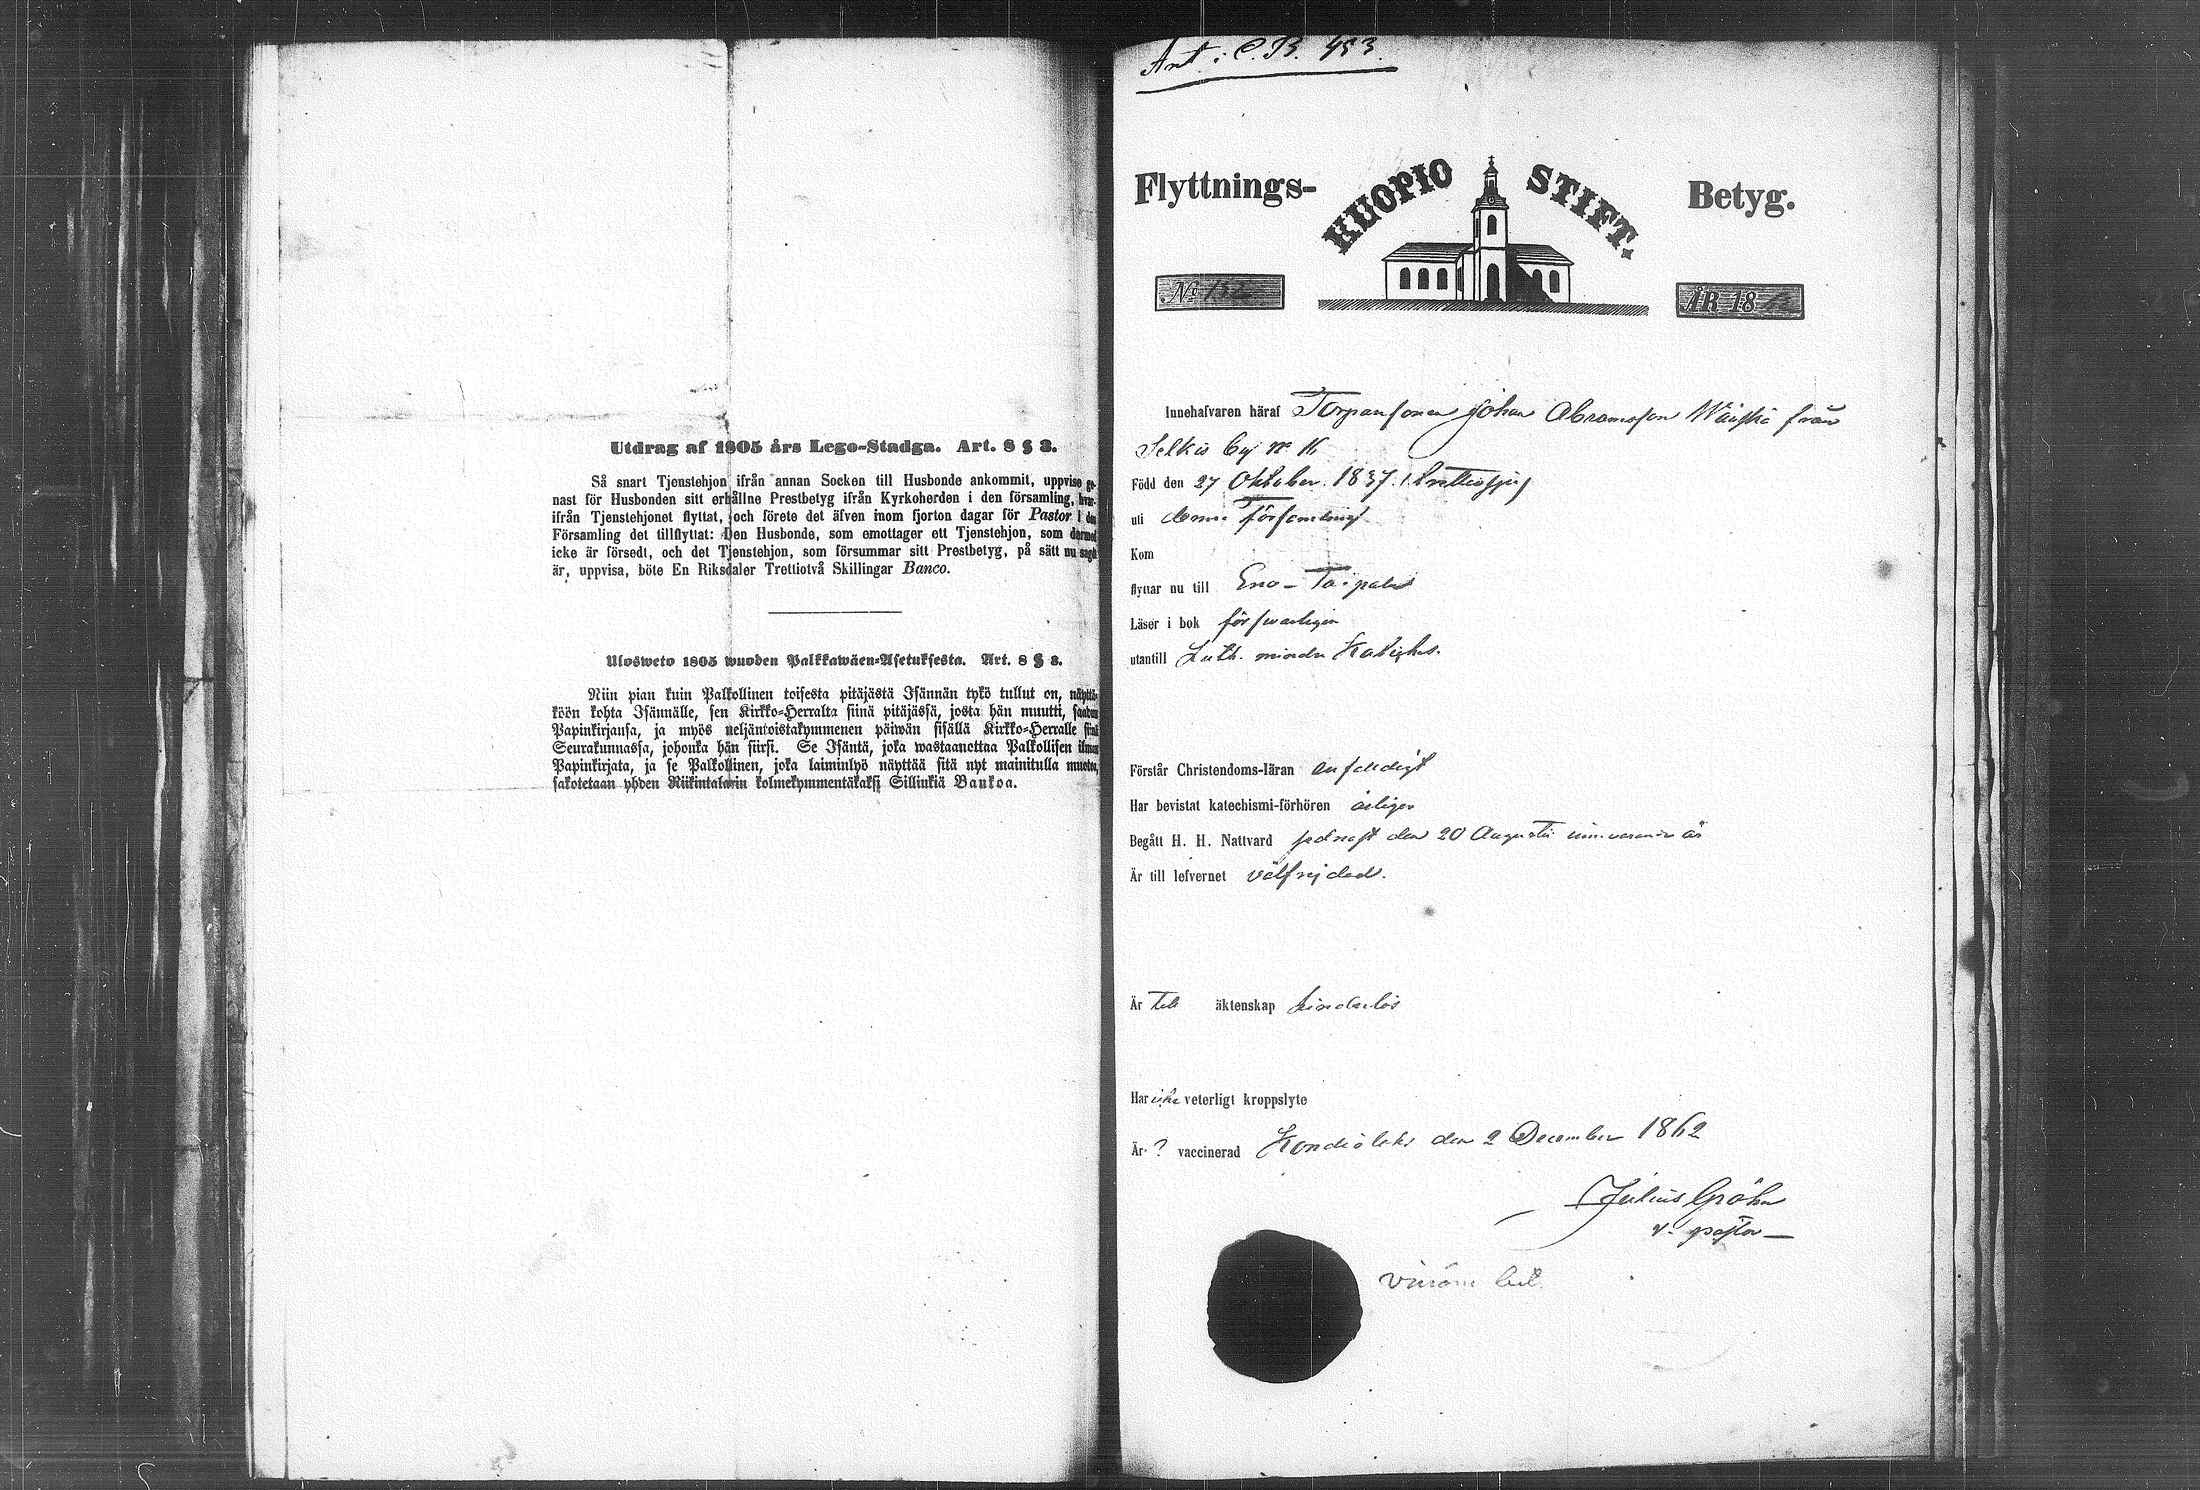 Utdrag af 1805 års Lego-Stadga. Art. 8 § 3.
Så snart Tjenstehjon ifrån annan Socken till Husbonde ankommit, uppvise ge-
nast för Husbonden sitt erhållne Prestbetyg ifrån Kyrkoherden i den församling, hvar-
ifrån Tjenstehjonet flyttat, och förete det äfven inom fjorton dagar för Pastor i den
Församling det tillflyttat: Den Husbonde, som emottager ett Tjenstehjon, som dermed
icke är försedt, och det Tjenstehjon, som försummar sitt Prestbetyg, på sätt nu sagdt
är, uppvisa, böte En Riksdaler Trettiotvå Skillingar Banco.
Ulosweto 1805 wuoden Palkkawäen-Asetuksesta. Art. 8 § 3.
Niin pian kuin Palkollinen toisesta pitäjästä Isännän tykö tullut on, näyttä-
köön kohta Isännälle, sen Kirkko-Herralta siinä pitäjässä, josta hän muutti, saadun
Papinkirjansa, ja myös neljäntoistakymmenen päiwän sisällä Kirkko-Herralle siinä
Seurakunnassa, johonka hän siirsi. Se Isäntä, joka wastaanottaa Palkollisen ilman
Papinkirjata, ja se Palkollinen, joka laiminlyö näyttää sitä nyt mainitulla muotoa,
sakotetaan yhden Riikintalarin kolmekymmentäkaksi Sillinkiä Bankoa.
Ant: C.B. 453.
Flyttnings- KUOPIO STIFT. Betyg.
No ÅR 18
Innehafvaren häraf Torparsonen Johan Abramsson Wäiski från
Selkis by No 16
Född den 27 Oktober 1837. (trettiosju)
uti denna församling
Kom
flyttar nu till Eno-Taipale
Läser i bok försvarligen
utantill Luth. mindre Kateches.
Förstår Christendoms-läran enfaldigt
Har bevistat katechismi-förhören årligen
Begått H. H. Nattvard sednast den 20 Augusti innevarande år
Är till lefvernet välfrejdad.
Är till äktenskap hinderlös
Har icke veterligt kroppslyte
Är ? vaccinerad Kondiolaks den 2 December 1862
Julius Gröhn
v. pastor